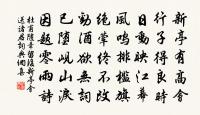 新亭有高會
行子得良時
日動映江幕
風鳴排檻旗
絕葷終不改
勸酒欲無詞
已墮峴山淚
因題零雨詩
杜甫隨章留後新亭會
送諸君詞典網集